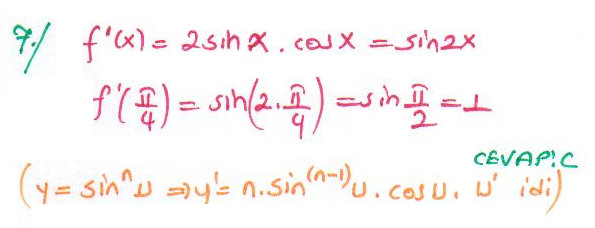 7./ f'(x) = 2sin x . cos x = sin2x
f'(π/4) = sin(2.π/4) = sin π/2 = 1
CEVAP: C
(y = sinⁿu ⇒ y' = n.sin⁽ⁿ⁻¹⁾u . cos u . u' idi)